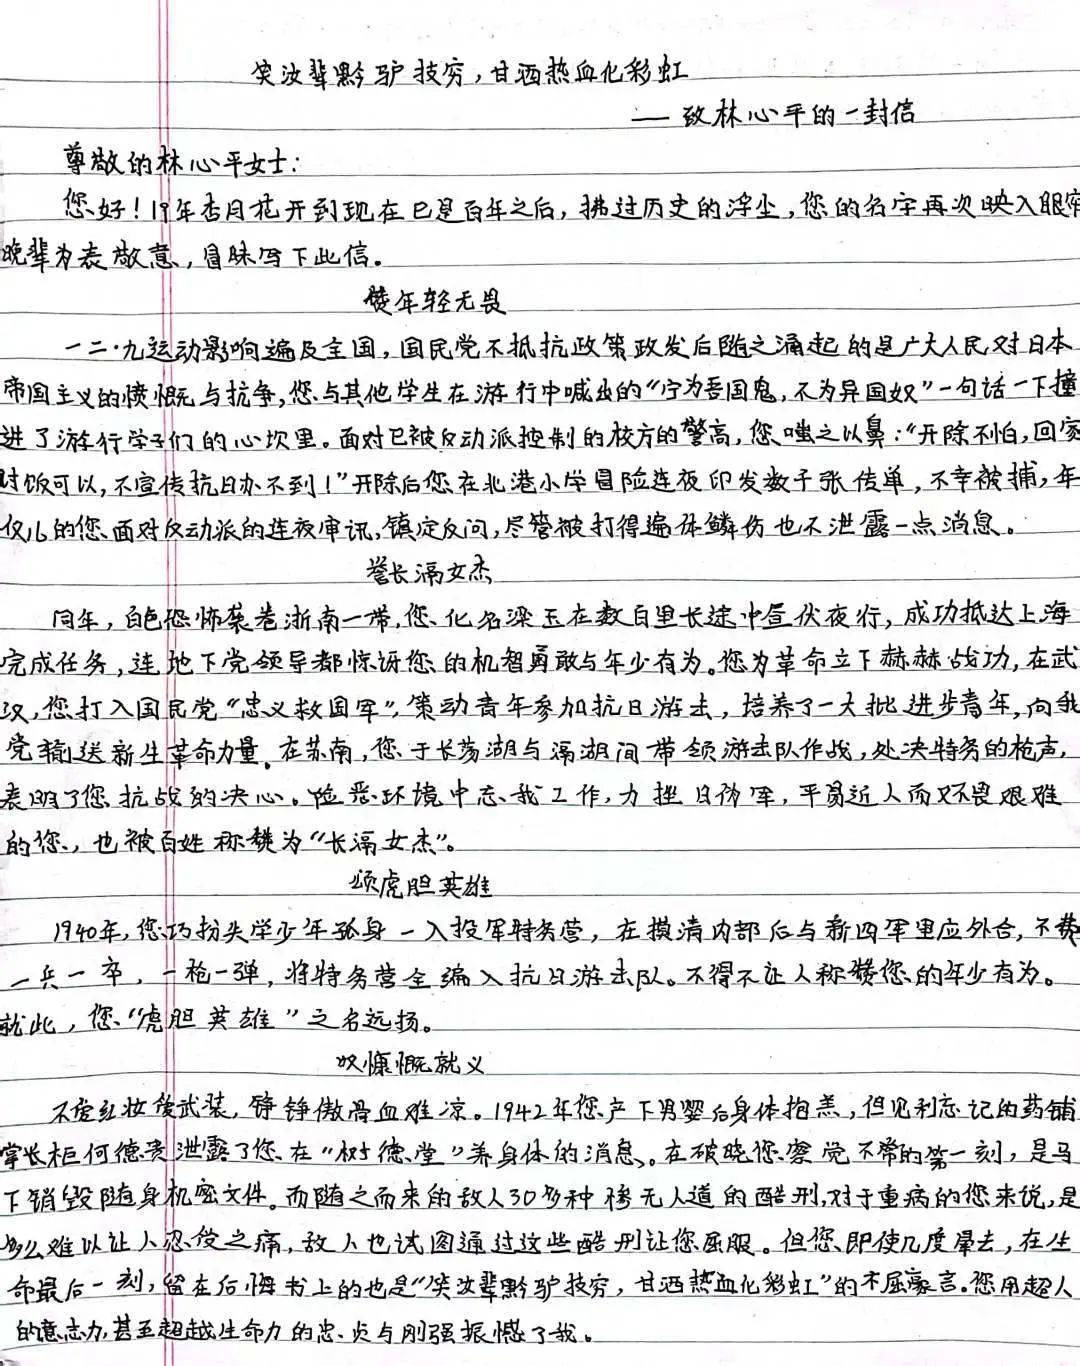 笑汝辈黔驴技穷，甘洒热血化彩虹
—致林心平的一封信
尊敬的林心平女士：
您好！19年杏月花开到现在已是百年之后，拂过历史的浮尘，您的名字再次映入眼帘
晚辈为表敬意，冒昧写下此信。
赞年轻无畏
一二·九运动影响遍及全国，国民党不抵抗政策政发后随之涌起的是广大人民对日本
帝国主义的愤慨与抗争，您与其他学生在游行中喊出的“宁为吾国鬼，不为异国奴”一句话一下撞
进了游行学子们的心坎里。面对已被反动派控制的校方的警高，您嗤之以鼻：“开除不怕，回家
吋饭可以，不宣传抗日办不到！”开除后您在北港小学冒险连夜印发数千张传单，不幸被捕，年
仅儿的您面对反动派的连夜审讯，镇定反问，尽管被打得遍体鳞伤也不泄露一点消息。
誉长滆女杰
同年，白色恐怖袭卷浙南一带，您化名梁玉在数百里长途中昼伏夜行，成功抵达上海
完成任务，连地下党领导都惊讶您的机智勇敢与年少有为。您为革命立下赫赫战功，在武
汉，您打入国民党“忠义救国军”，策动青年参加抗日游击，培养了一大批进步青年，向我
党输送新生革命力量。在苏南，您于长荡湖与滆湖间带领游击队作战，处决特务的枪声，
表明了您抗战的决心。险恶环境中忘我工作，力挫日伪军，平易近人而又不畏艰难
的您，也被百姓称赞为“长滆女杰”。
颂虎胆英雄
1940年，您巧扮失学少年孤身一入投军特务营，在摸清内部后与新四军里应外合，不费
一兵一卒，一枪一弹，将特务营全编入抗日游击队。不得不让人称赞您的年少有为。
就此，您“虎胆英雄”之名远扬。
叹慷慨就义
不爱红妆爱武装，铮铮傲骨血难凉。1942年您产下男婴后身体抱恙，但见利忘记的药铺
掌长柜何德贵泄露了您在“树德堂”养身体的消息。在破晓您察觉不常的第一刻，是马
下销毁随身机密文件。而随之而来的敌人30多种惨无人道的酷刑，对于重病的您来说，是
多么难以让人忍受之痛，敌人也试图通过这些酷刑让您屈服。但您即使几度晕去，在生
命最后一刻，留在后悔书上的也是“笑汝辈黔驴技穷，甘洒热血化彩虹”的不屈豪言。您用超人
的意志力，甚至超越生命力的忠贞与刚强振憾了我。